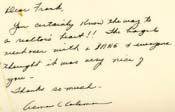 Dear Frank,
You certainly know the way to
a realtor's heart!! The bagels
were here with a BANG & everyone
thought it was very nice of
you -
Thanks so much -
Coleman